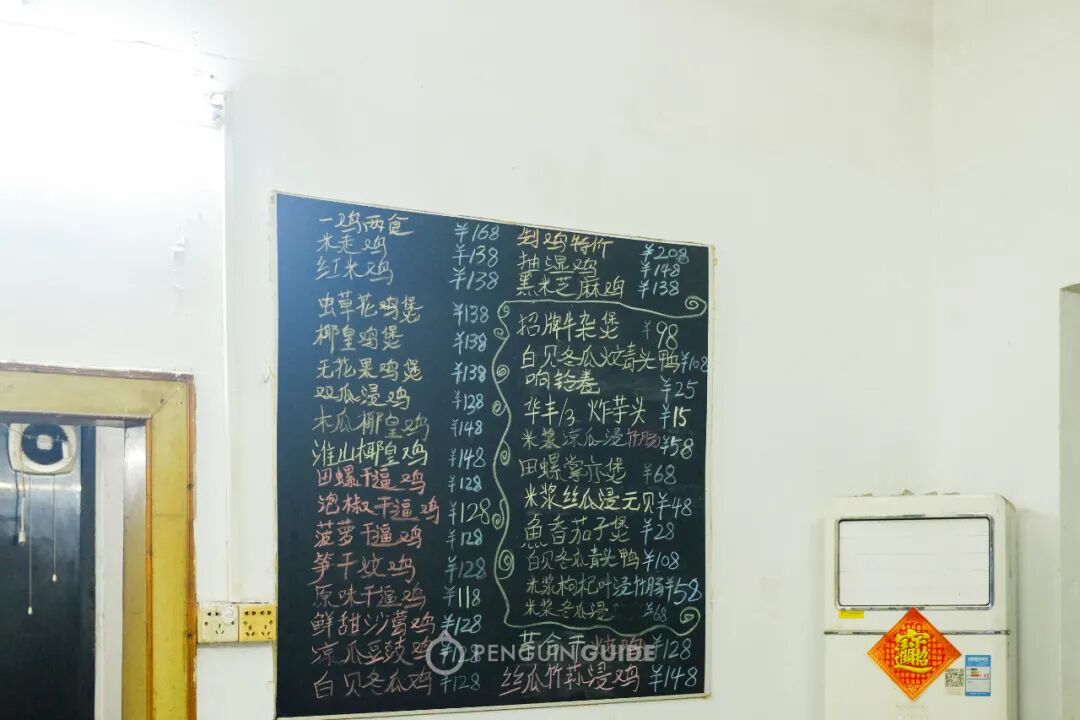 一鸡两食 ¥168
米走鸡 ¥138
红米鸡 ¥138
虫草花鸡煲 ¥138
椰皇鸡煲 ¥138
无花果鸡煲 ¥138
双瓜浸鸡 ¥128
木瓜椰皇鸡 ¥148
淮山椰皇鸡 ¥148
田螺干逼鸡 ¥128
泡椒干逼鸡 ¥128
菠萝干逼鸡 ¥128
笋干炆鸡 ¥128
原味干逼鸡 ¥118
鲜甜沙葛鸡 ¥128
凉瓜豆豉鸡 ¥128
白贝冬瓜鸡 ¥128
鸡特价 ¥208
抽湿鸡 ¥148
黑米芝麻鸡 ¥138
招牌牛杂煲 ¥98
白贝冬瓜炆青头鸭 ¥108
响铃卷 ¥25
华丰 炸芋头 ¥15
米浆凉瓜浸竹肠 ¥58
田螺掌亦煲 ¥68
米浆丝瓜浸元贝 ¥48
鱼香茄子煲 ¥28
白贝冬瓜青头鸭 ¥108
米浆枸杞叶浸竹肠 ¥58
米浆冬瓜浸 ¥68
鸡 ¥128
丝瓜竹荪浸鸡 ¥148
PENGUIN GUIDE